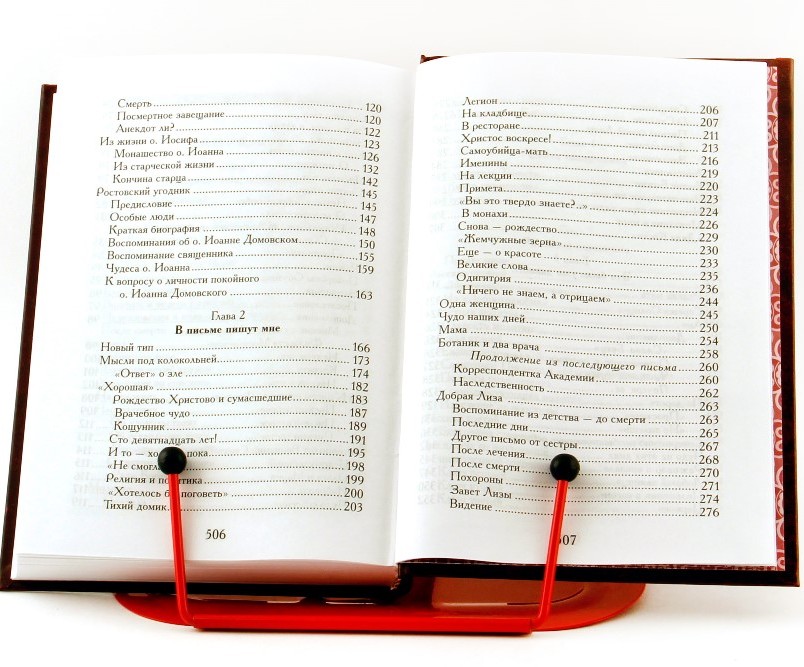 Смерть 120
Посмертное завещание 120
Анекдот ли? 122
Из жизни о. Иосифа 123
Монашество о. Иоанна 126
Из старческой жизни 132
Кончина старца 142
Ростовский угодник 145
Предисловие 145
Особые люди 147
Краткая биография 148
Воспоминания об о. Иоанне Домовском 150
Воспоминание священника 155
Чудеса о. Иоанна 159
К вопросу о личности покойного
о. Иоанна Домовского 163
Глава 2
В письме пишут мне
Новый тип 166
Мысли под колокольней 173
«Ответ» о зле 174
«Хорошая» 182
Рождество Христово и сумасшедшие 183
Врачебное чудо 187
Кощунник 189
Сто девятнадцать лет! 191
И то — пока 195
«Не 198
Религия и 199
«Хотелось бы поговеть» 200
Тихий домик 203
506
Легион 206
На кладбище 207
В ресторане 211
Христос воскресе! 213
Самоубийца-мать 216
Именины 219
На лекции 220
Примета 223
«Вы это твердо знаете?..» 224
В монахи 226
Снова — рождество 229
«Жемчужные зерна» 230
Еще — о красоте 233
Великие слова 235
Одигитрия 236
«Ничего не знаем, а отрицаем» 244
Одна женщина 245
Чудо наших дней 250
Мама 254
Ботаник и два врача 258
Продолжение из последующего письма 260
Корреспондентка Академии 260
Наследственность 262
Добрая Лиза 263
Воспоминание из детства — до смерти 263
Последние дни 265
Другое письмо от сестры 267
После лечения 268
После смерти 270
Похороны 271
Завет Лизы 274
Видение 276